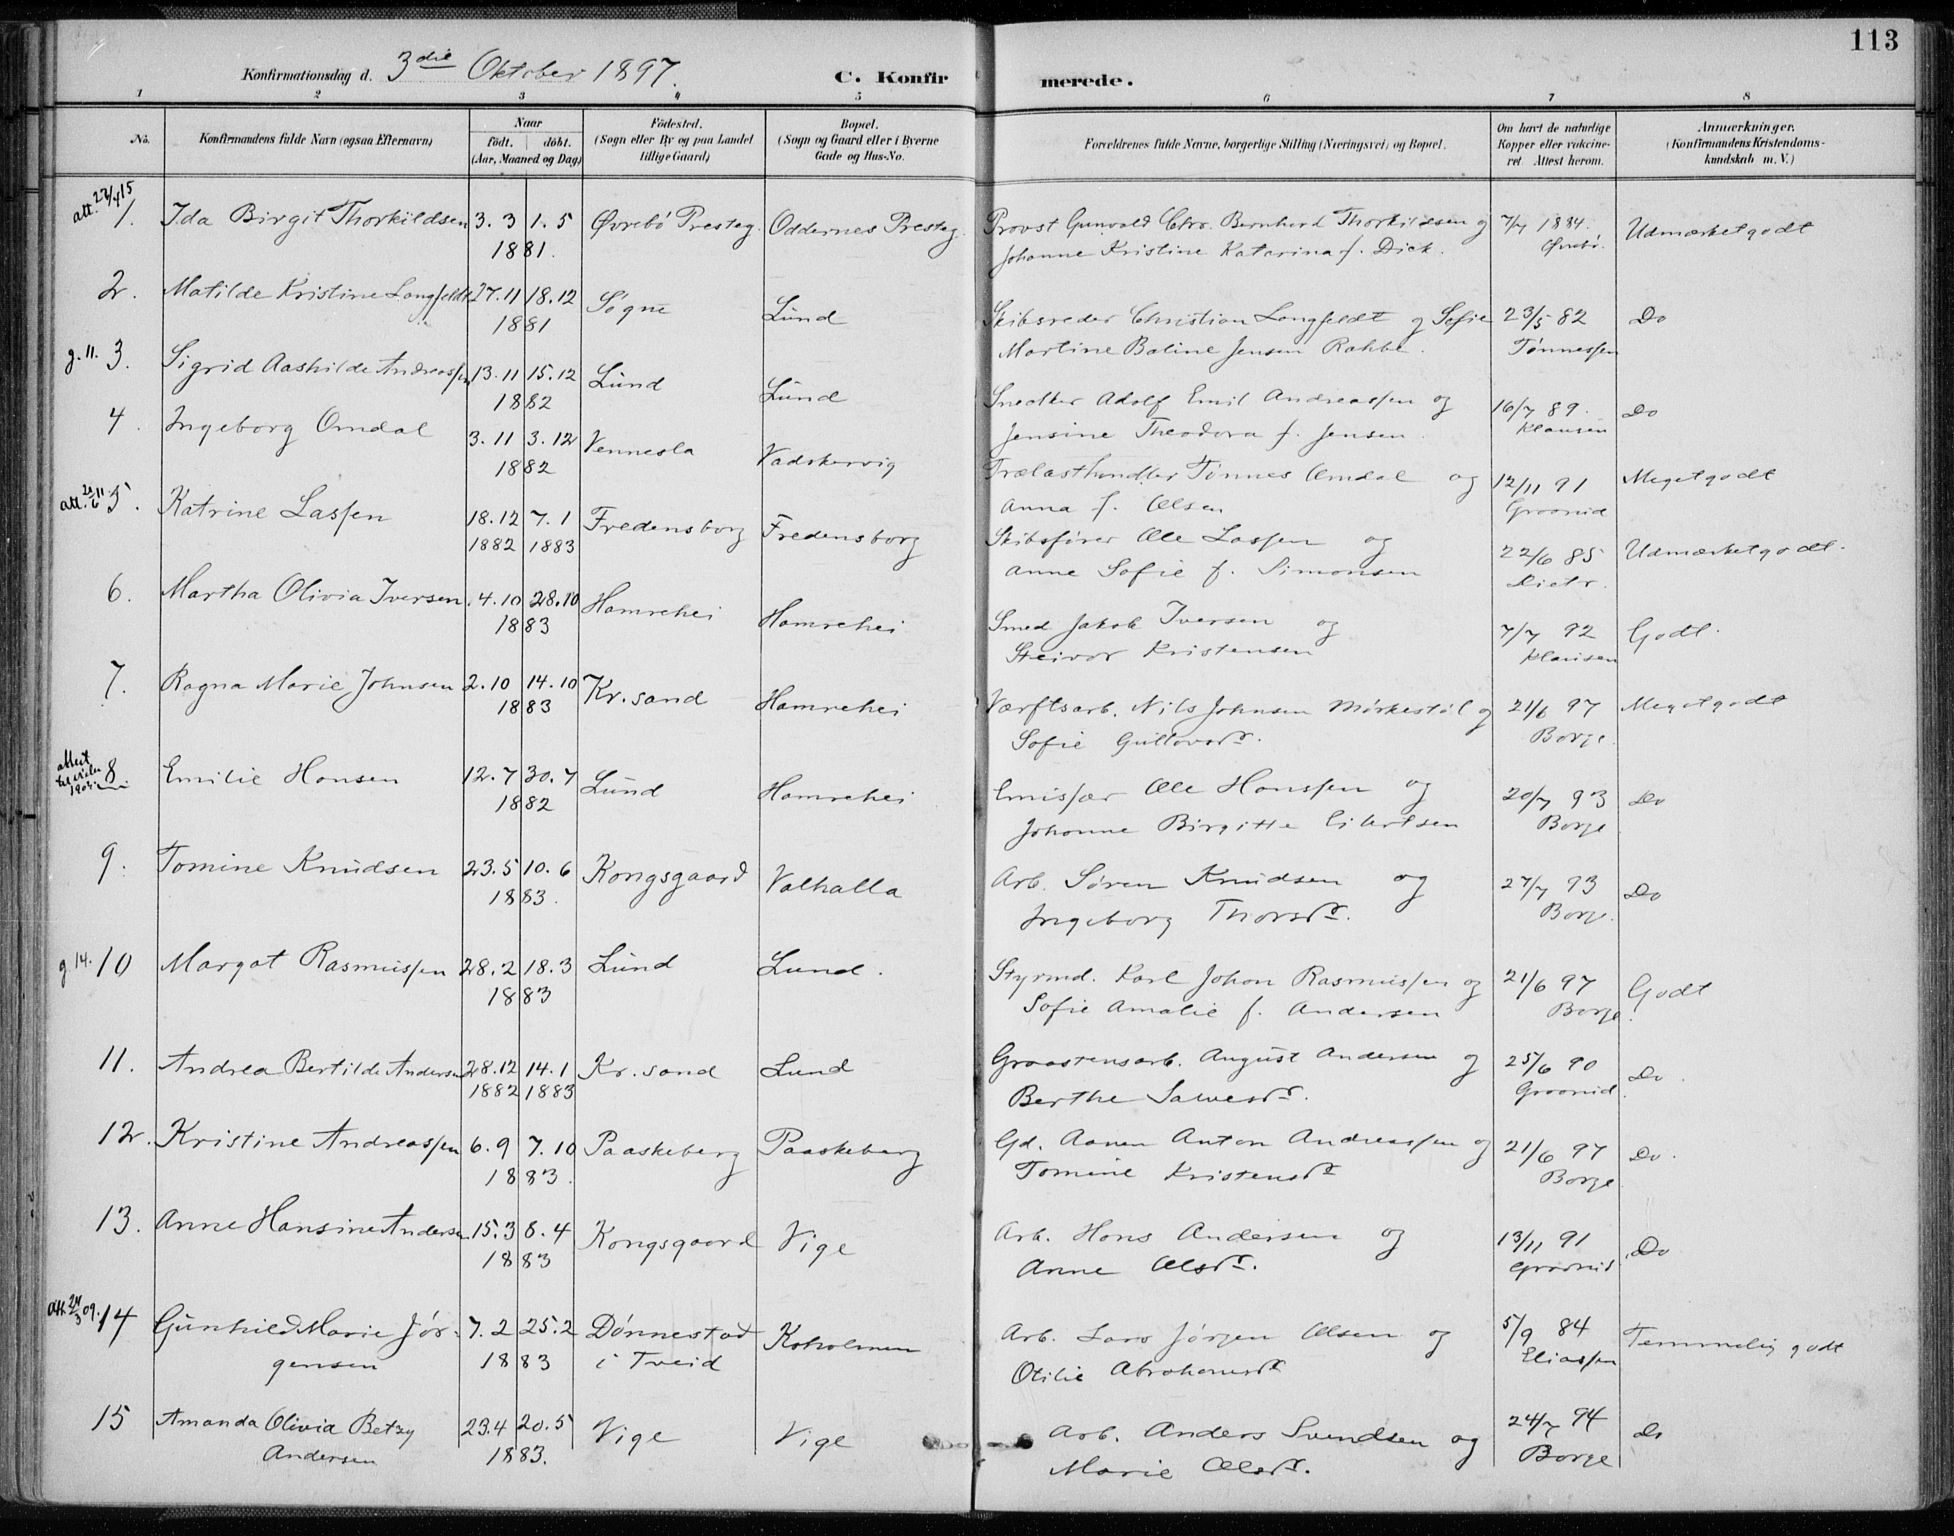 113
Konfirmationsdag d. 3die Oktober 1897. C. Konfirmerede.
1 2 3 4 5 6 7 8
No. Konfirmandens fulde Navn (ogsaa Efternavn) Naar födt. döbt. (Aar, Maaned og Dag) Födested. (Sogn eller By og paa Landet tillige Gaard) Bopæl. (Sogn og Gaard eller i Byerne Gade og Hus-No. Forældrenes fulde Navne, borgerlige Stilling (Næringsvei) og Bopæl. Om havt de naturlige Kopper eller vakcineret. Attest herom. Anmærkninger. (Konfirmandens Kristendomskundskab m. V.)
1. Ida Birgit Thorkildsen 3. 3 1. 5 Øvrebö Presteg. Oddernes Presteg. Provst Gunvald Chr. Bernhard Thorkildsen og 7/7 1884. Udmærketgodt
1881. Johanne Kristine Katarina f. Dick. Øvrebö.
2. Matilde Kristine Langfeldt 27.11 18.12 Søgne Lund Skibsreder Christian Langfeldt og Sofie 23/5 82 Do
1881 Martine Baline Jensen Rahbe. Tønnessen
g. 11. 3. Sigrid Aashilde Andreassen 13.11 15.12 Lund Lund Snedker Adolf Emil Andreassen og 16/7 89. Do
1882 Jensine Theodora f. Jensen. Klausen
4. Ingeborg Omdal 3. 11 3. 12 Vennesla Vadskervig Trælasthandler Tønnes Omdal og 12/11 91 Megetgodt
1882 Anna f. Olsen Graanid
att. 5. Katrine Lassen 18.12 7. 1 Fredensborg Fredensborg Skibsfører Ole Lassen og 22/6 85 Udmærketgodt.
1882 1883 Anne Sofie f. Simonsen Dietr.
6. Martha Olivia Iversen 4.10 28.10 Hamrehei Hamrehei Smed Jakob Iversen og 7/7 92 Godt.
1883 Steivor Kristensen Klausen
7. Ragna Marie Johnsen 2.10 14.10 Kr.sand Hamrehei Værftsarb. Nils Johnsen Mørkestøl og 21/6 97 Megetgodt
1883 Sofie Gullovsdr. Borge.
attest 8. Emilie Hansen 12. 7 30. 7 Lund Hamrehei Emissær Ole Hanssen og 20/7 93 Do
1882 Johanne Birgitte Eilertsen Borge
9. Tomine Knudsen 23. 5 10. 6 Kongsgaard Valhalla Arb. Søren Knudsen og 27/7 93 Do
1883. Ingeborg Thorsdr. Borge.
g 14. 10 Margot Rasmussen 28. 2 18. 3 Lund Lund. Styrmd. Karl Johan Rasmussen og 21/6 97 Godt
1883 Sofie Amalie f. Andersen Borge.
11. Andrea Bertilde Andersen 28.12 14. 1 Kr. sand Lund Graastensarb. August Andersen og 25/6 90 Do.
1882 1883 Berthe Salvesdr. Graanid
12. Kristine Andreassen 6. 9 7. 10 Paaskeberg Paaskeberg Gd. Aanen Anton Andreassen og 21/6 97 Do.
1883. Tomine Kristensdr Borge
13. Anne Hansine Andersen 15.3 8. 4 Kongsgaard Vige Arb. Hans Andersen og 13/11 91 Do
1883 Anne Olsdr. Graanid
Att. 24/3 09. 14 Gunhild Marie Jör- 7. 2 25.2 Dönnestad Kokolmen Arb. Lars Jørgen Olsen og 5/9 84 Temmelig godt
gensen 1883 i Tveid Otilie Abrahamsdr Eliassen
15 Amanda Olivia Betzy 23.4 20. 5 Vige Vige Arb. Anders Svendsen og 24/7 94 Do
Andersen 1883. Marie Olsdr. Borge